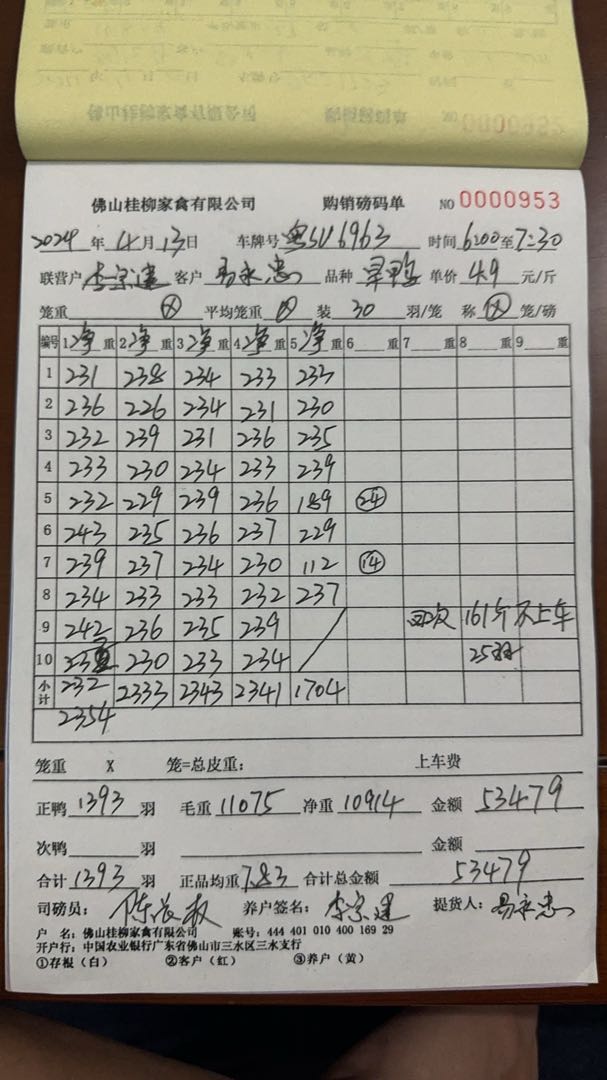 佛山桂柳家禽有限公司 购销磅码单 NO 0000953
2024年4月13日 车牌号 粤SU6963 时间6:00至7:30
联营户 李宗建 客户 易永忠 品种 旱鸭 单价 4.9 元/斤
笼重 平均笼重 装 30 羽/笼 称 笼/磅
编号 1净重 2净重 3净重 4净重 5净重 6 重 7 重 8 重 9
1 231 238 234 233 233
2 236 226 234 231 230
3 232 239 231 236 235
4 233 230 234 233 239
5 232 229 239 236 189 24
6 243 235 236 237 229
7 239 237 234 230 112 14
8 234 233 233 232 237
9 242 236 235 239 / 161斤不上车
10 230 233 234 25羽
小计 232 2333 2343 2341 1704
2354
笼重 X 笼=总皮重： 上车费
正鸭 1393 羽 毛重 11075 净重 10914 金额 53479
次鸭 羽 金额
合计 1393 羽 正品均重 7.83 合计总金额 53479
司磅员： 养户签名： 李宗建 提货人： 易永忠
户 名：佛山桂柳家禽有限公司 账号：444 401 010 400 169 29
开户行：中国农业银行广东省佛山市三水区三水支行
①存根（白） ②客户（红） ③养户（黄）